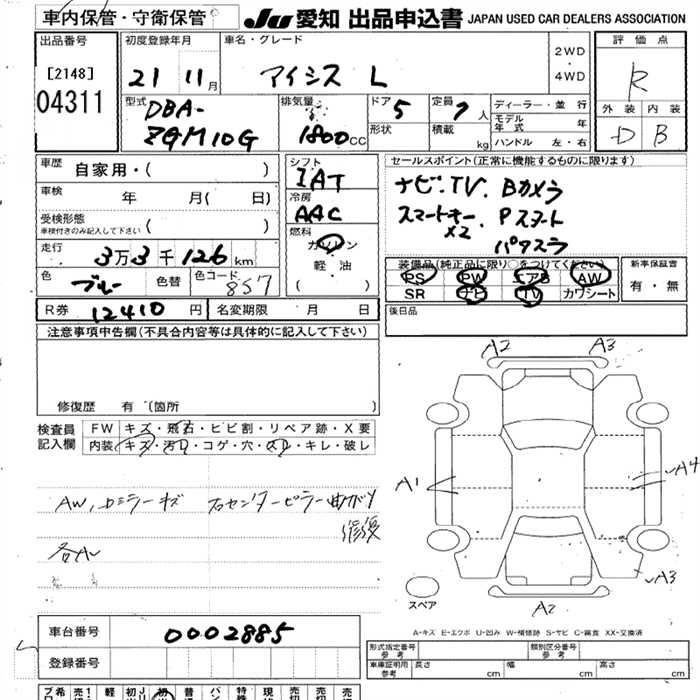 車内保管・守衛保管
JU 愛知 出品申込書 JAPAN USED CAR DEALERS ASSOCIATION
出品番号
[2148]
04311
初度登録年月
21 11月
車名・グレード
アイシス L
2WD
・
4WD
評価点
R
外装 内装
D B
型式
DBA-
ZGM10G
排気量
1800cc
ドア 5
形状
定員 7人
積載 kg
ディーラー・並行
モデル年式 年
ハンドル 左・右
車歴 自家用・( )
車検 年 月( 日)
受検形態
車検付きのみ記入して下さい ( )
走行 3万3千126km
色 ブルー 色替 色コード 857
シフト
IAT
冷房
AAC
燃料
ガソリン
軽・油
( )
セールスポイント(正常に機能するものに限ります)
ナビ、TV、Bカメラ
スマートキー×2、Pスタート
パワスラ
装備品(純正品に限り○をつけてください)
PS PW エアB AW
SR ナビ TV カワシート
新車保証書
有・無
R券 12410円
名変期限 月 日
後日品
注意事項申告欄(不具合内容等は具体的に記入して下さい)
修復歴 有(箇所 )
検査員記入欄
FW キズ・飛石・ヒビ割・リペア跡・X要
内装 キズ・汚れ・コゲ・穴・スレ・キレ・破レ
AW、ドミラーキズ 右センターピラー曲がり
修復
各A
A2 A3
A1 A4
A3
A2
スペア
A-キズ E-エクボ U-凹み W-補修跡 S-サビ C-腐食 XX-交換済
車台番号 0002885
登録番号
形式指定番号 参考
類別区分番号 参考
車庫証明用 参考 長さ cm 幅 cm 高さ cm